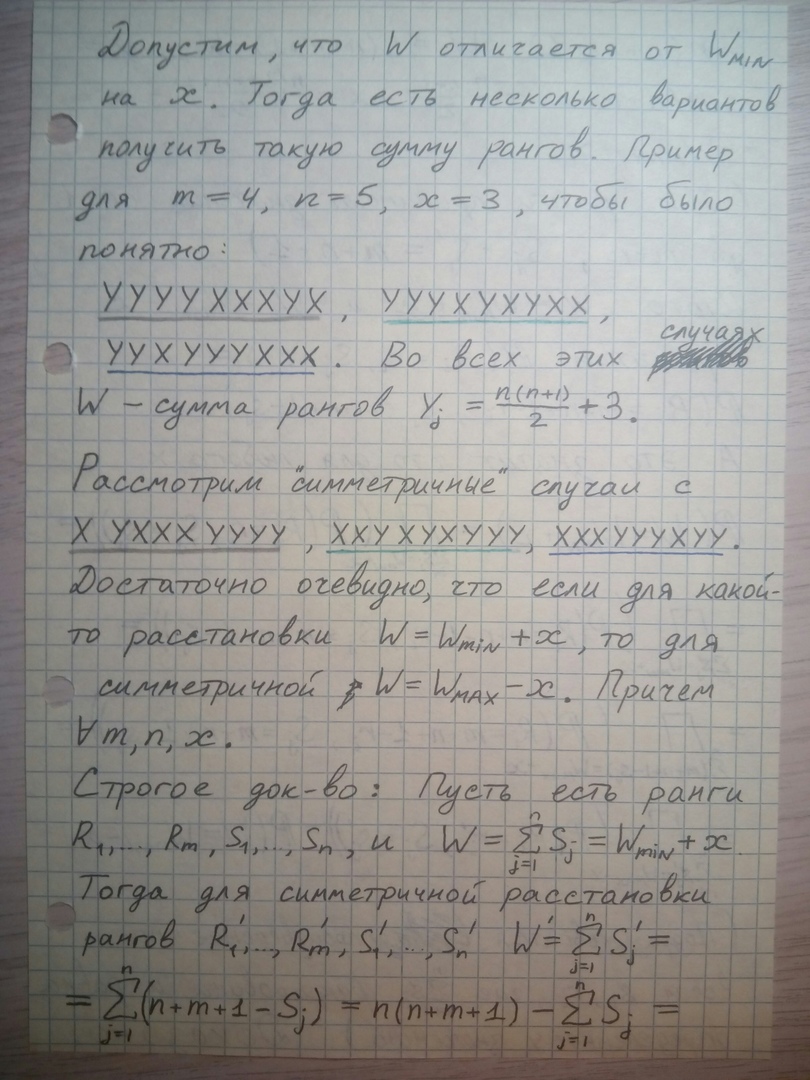 Допустим, что W отличается от W_MIN
на x. Тогда есть несколько вариантов
получить такую сумму рангов. Пример
для m = 4, n = 5, x = 3, чтобы было
понятно:
YYYYXXXYX, YYYXYXYXX,
YYXYYYXXX. Во всех этих случаях
W – сумма рангов Y_j = n(n+1)/2 + 3.
Рассмотрим "симметричные" случаи с
XYXXXYYYY, XXYXYXYYY, XXXYYYXYY.
Достаточно очевидно, что если для какой-
то расстановки W = W_min + x, то для
симметричной W = W_MAX - x. Причем
∀ m, n, x.
Строгое док-во: Пусть есть ранги
R_1, ..., R_m, S_1, ..., S_n, и W = ∑_{j=1}^{n} S_j = W_min + x.
Тогда для симметричной расстановки
рангов R_1', ..., R_m', S_1', ..., S_n' W' = ∑_{j=1}^{n} S_j' =
= ∑_{j=1}^{n} (n+m+1 - S_j) = n(n+m+1) - ∑_{j=1}^{n} S_j =